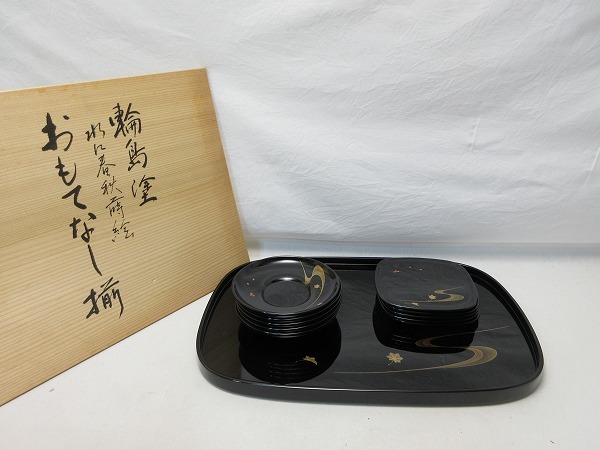 輪島塗
水に春秋蒔絵
おもてなし揃